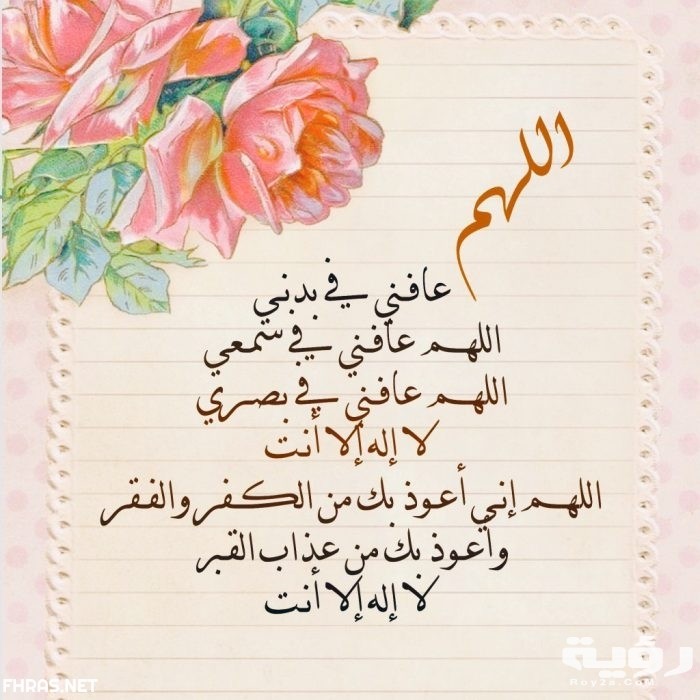 اللهم
عافني في بدني
اللهم عافني في سمعي
اللهم عافني في بصري
لا إله إلا أنت
اللهم إني أعوذ بك من الكفر والفقر
وأعوذ بك من عذاب القبر
لا إله إلا أنت
رؤية
Roy2a.CoM
FHRAS.NET